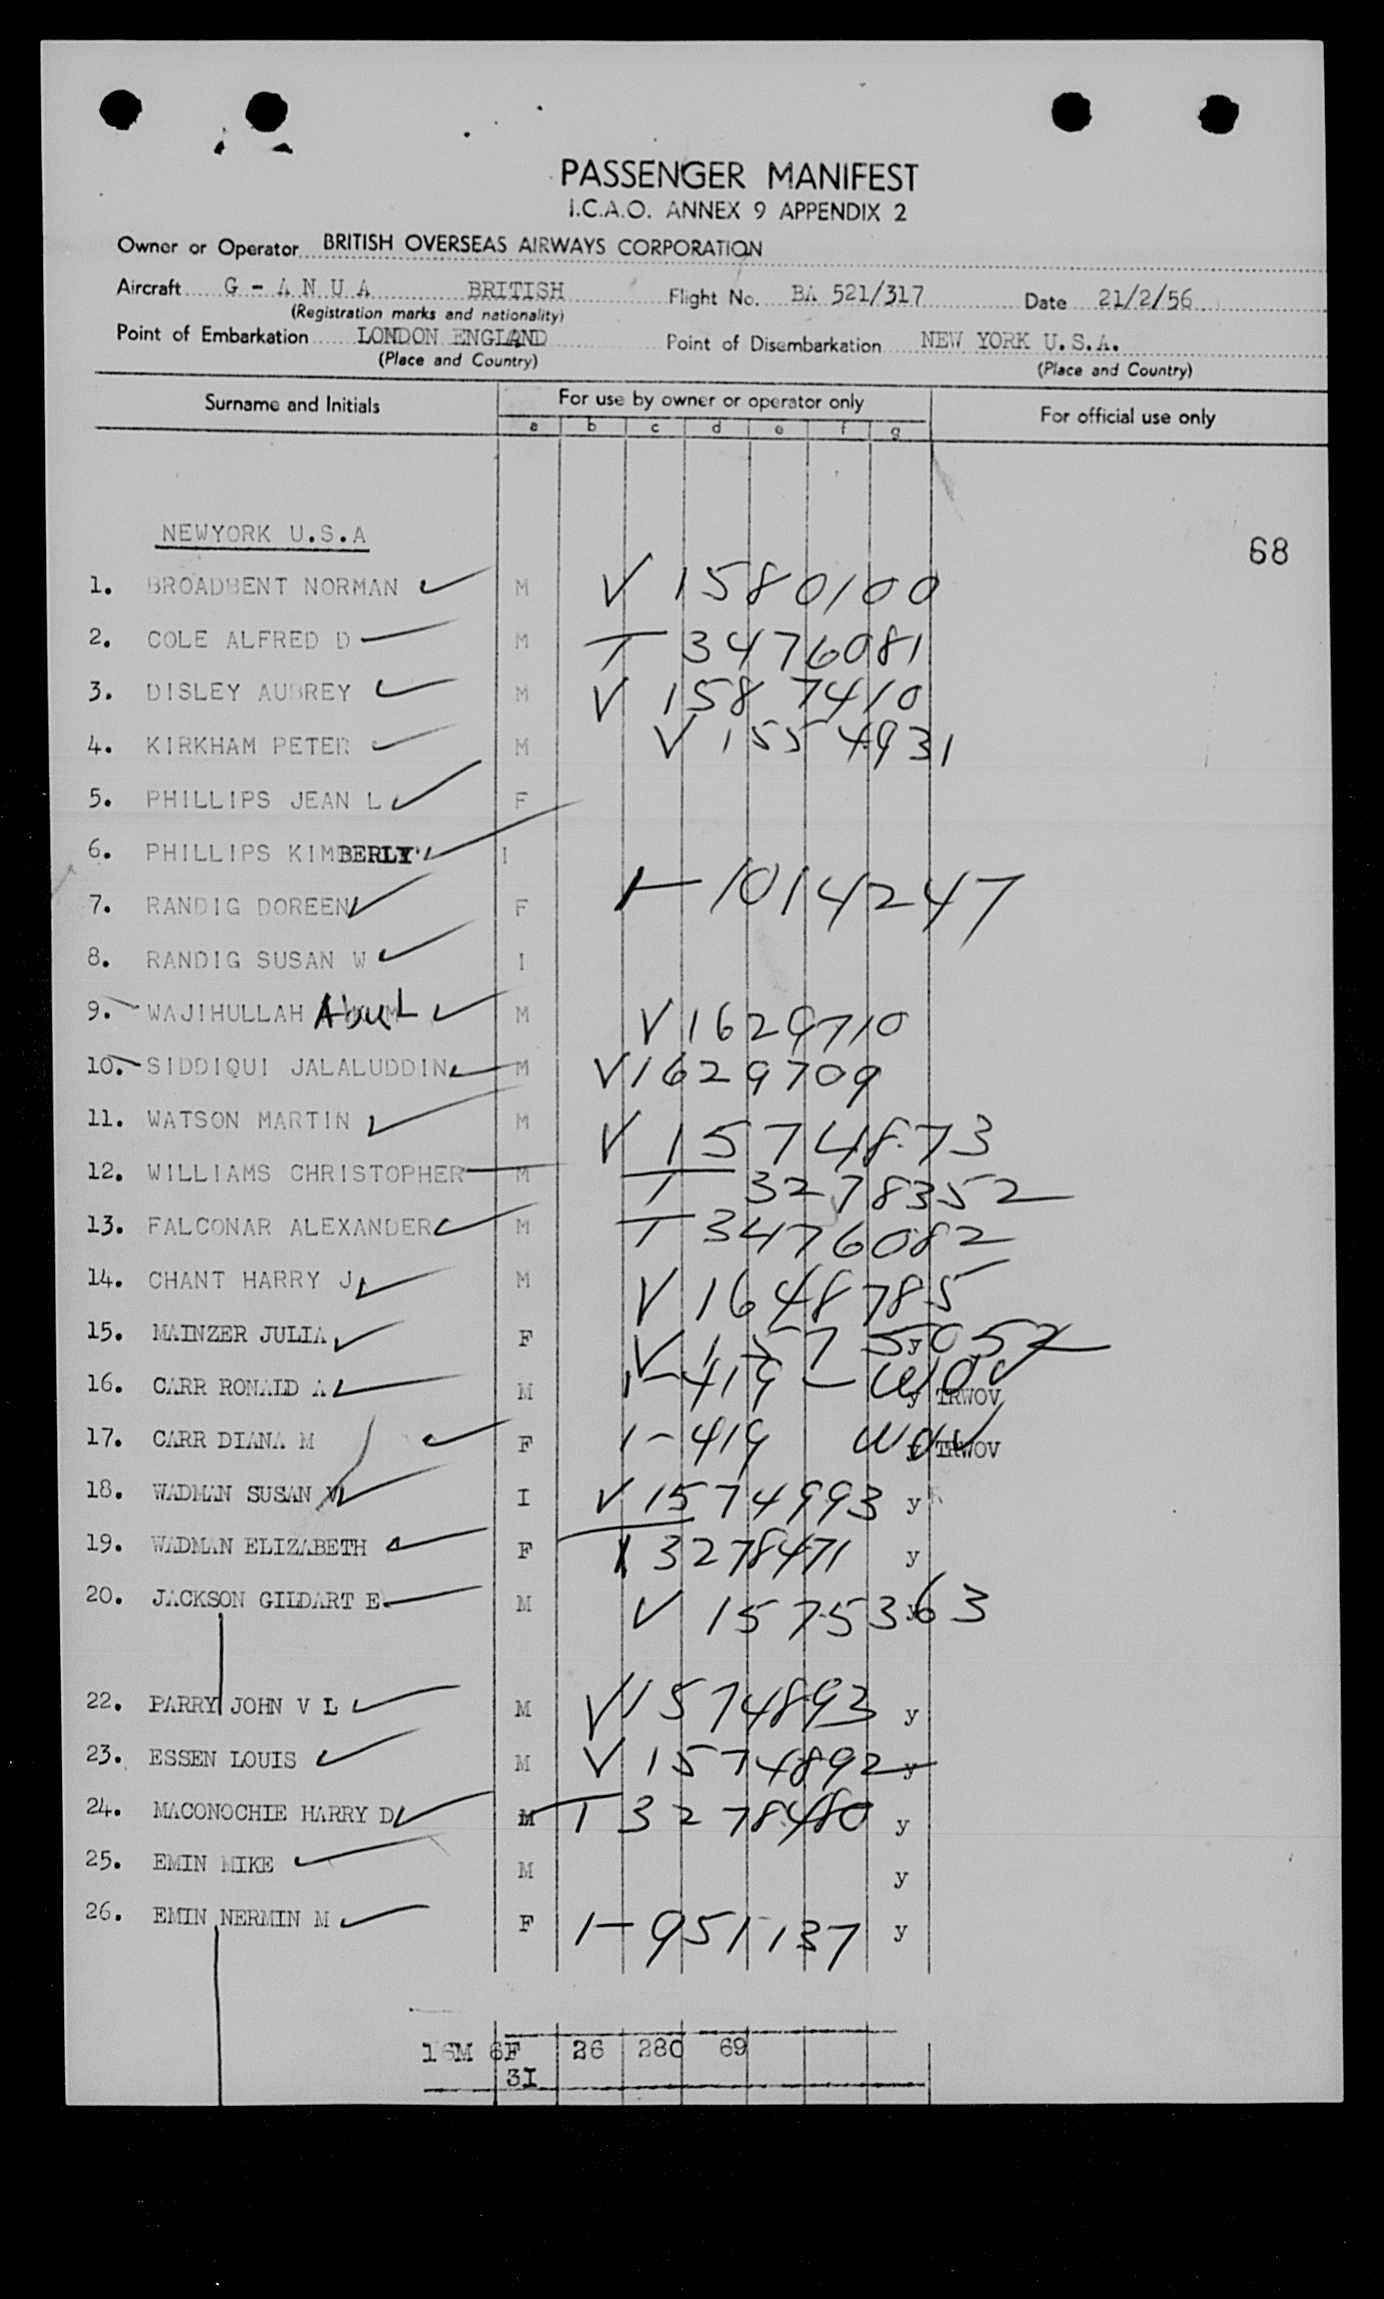 PASSENGER MANIFEST
I.C.A.O. ANNEX 9 APPENDIX 2
Owner or Operator BRITISH OVERSEAS AIRWAYS CORPORATION
Aircraft G - A N U A BRITISH Flight No. BA 521/317 Date 21/2/56
(Registration marks and nationality)
Point of Embarkation LONDON ENGLAND Point of Disembarkation NEW YORK U.S.A.
(Place and Country) (Place and Country)
Surname and Initials For use by owner or operator only For official use only
a b c d e f g
NEWYORK U.S.A
68
1. BROADBENT NORMAN M V 1580100
2. COLE ALFRED D M T 3476081
3. DISLEY AUBREY M V 1587410
4. KIRKHAM PETER M V 1554931
5. PHILLIPS JEAN L F
6. PHILLIPS KIMBERLY I
7. RANDIG DOREEN F 1-1014247
8. RANDIG SUSAN W I
9. WAJIHULLAH AbuL M V1629710
10. SIDDIQUI JALALUDDIN M V1629709
11. WATSON MARTIN M V 1574873
12. WILLIAMS CHRISTOPHER M T 3278352
13. FALCONAR ALEXANDER M T 3476082
14. CHANT HARRY J M V 1648785
15. MAINZER JULIA F V 1575052 y
16. CARR RONALD A M 1-419 - WOV y TRWOV
17. CARR DIANA M F 1-419 WOV y TRWOV
18. WADMAN SUSAN I V 1574993 y
19. WADMAN ELIZABETH F T 3278471 y
20. JACKSON GILDART E M V 1575363 y
22. PARRY JOHN V L M V1574893 y
23. ESSEN LOUIS M V 1574892 y
24. MACONOCHIE HARRY D M T 3278480 y
25. EMIN MIKE M y
26. EMIN NERMIN M F 1-951137 y
16M 6F 26 280 69
3I